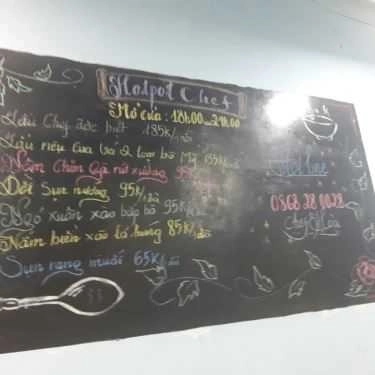 Hotpot Chef
Mở cửa : 18h00 - 24h00
Lẩu Chef đặc biệt 185K/nồi
Lẩu riêu cua bò 155K/nồi
Nầm Chân Gà nướng 95K
Dồi Sụn nướng 95K/đĩa
Ngó xuân xào bắp bò 95K/đĩa
Nấm biển xào lá lung 85K/đĩa
Sụn rang muối 65K/đĩa
Hot line
0868 28